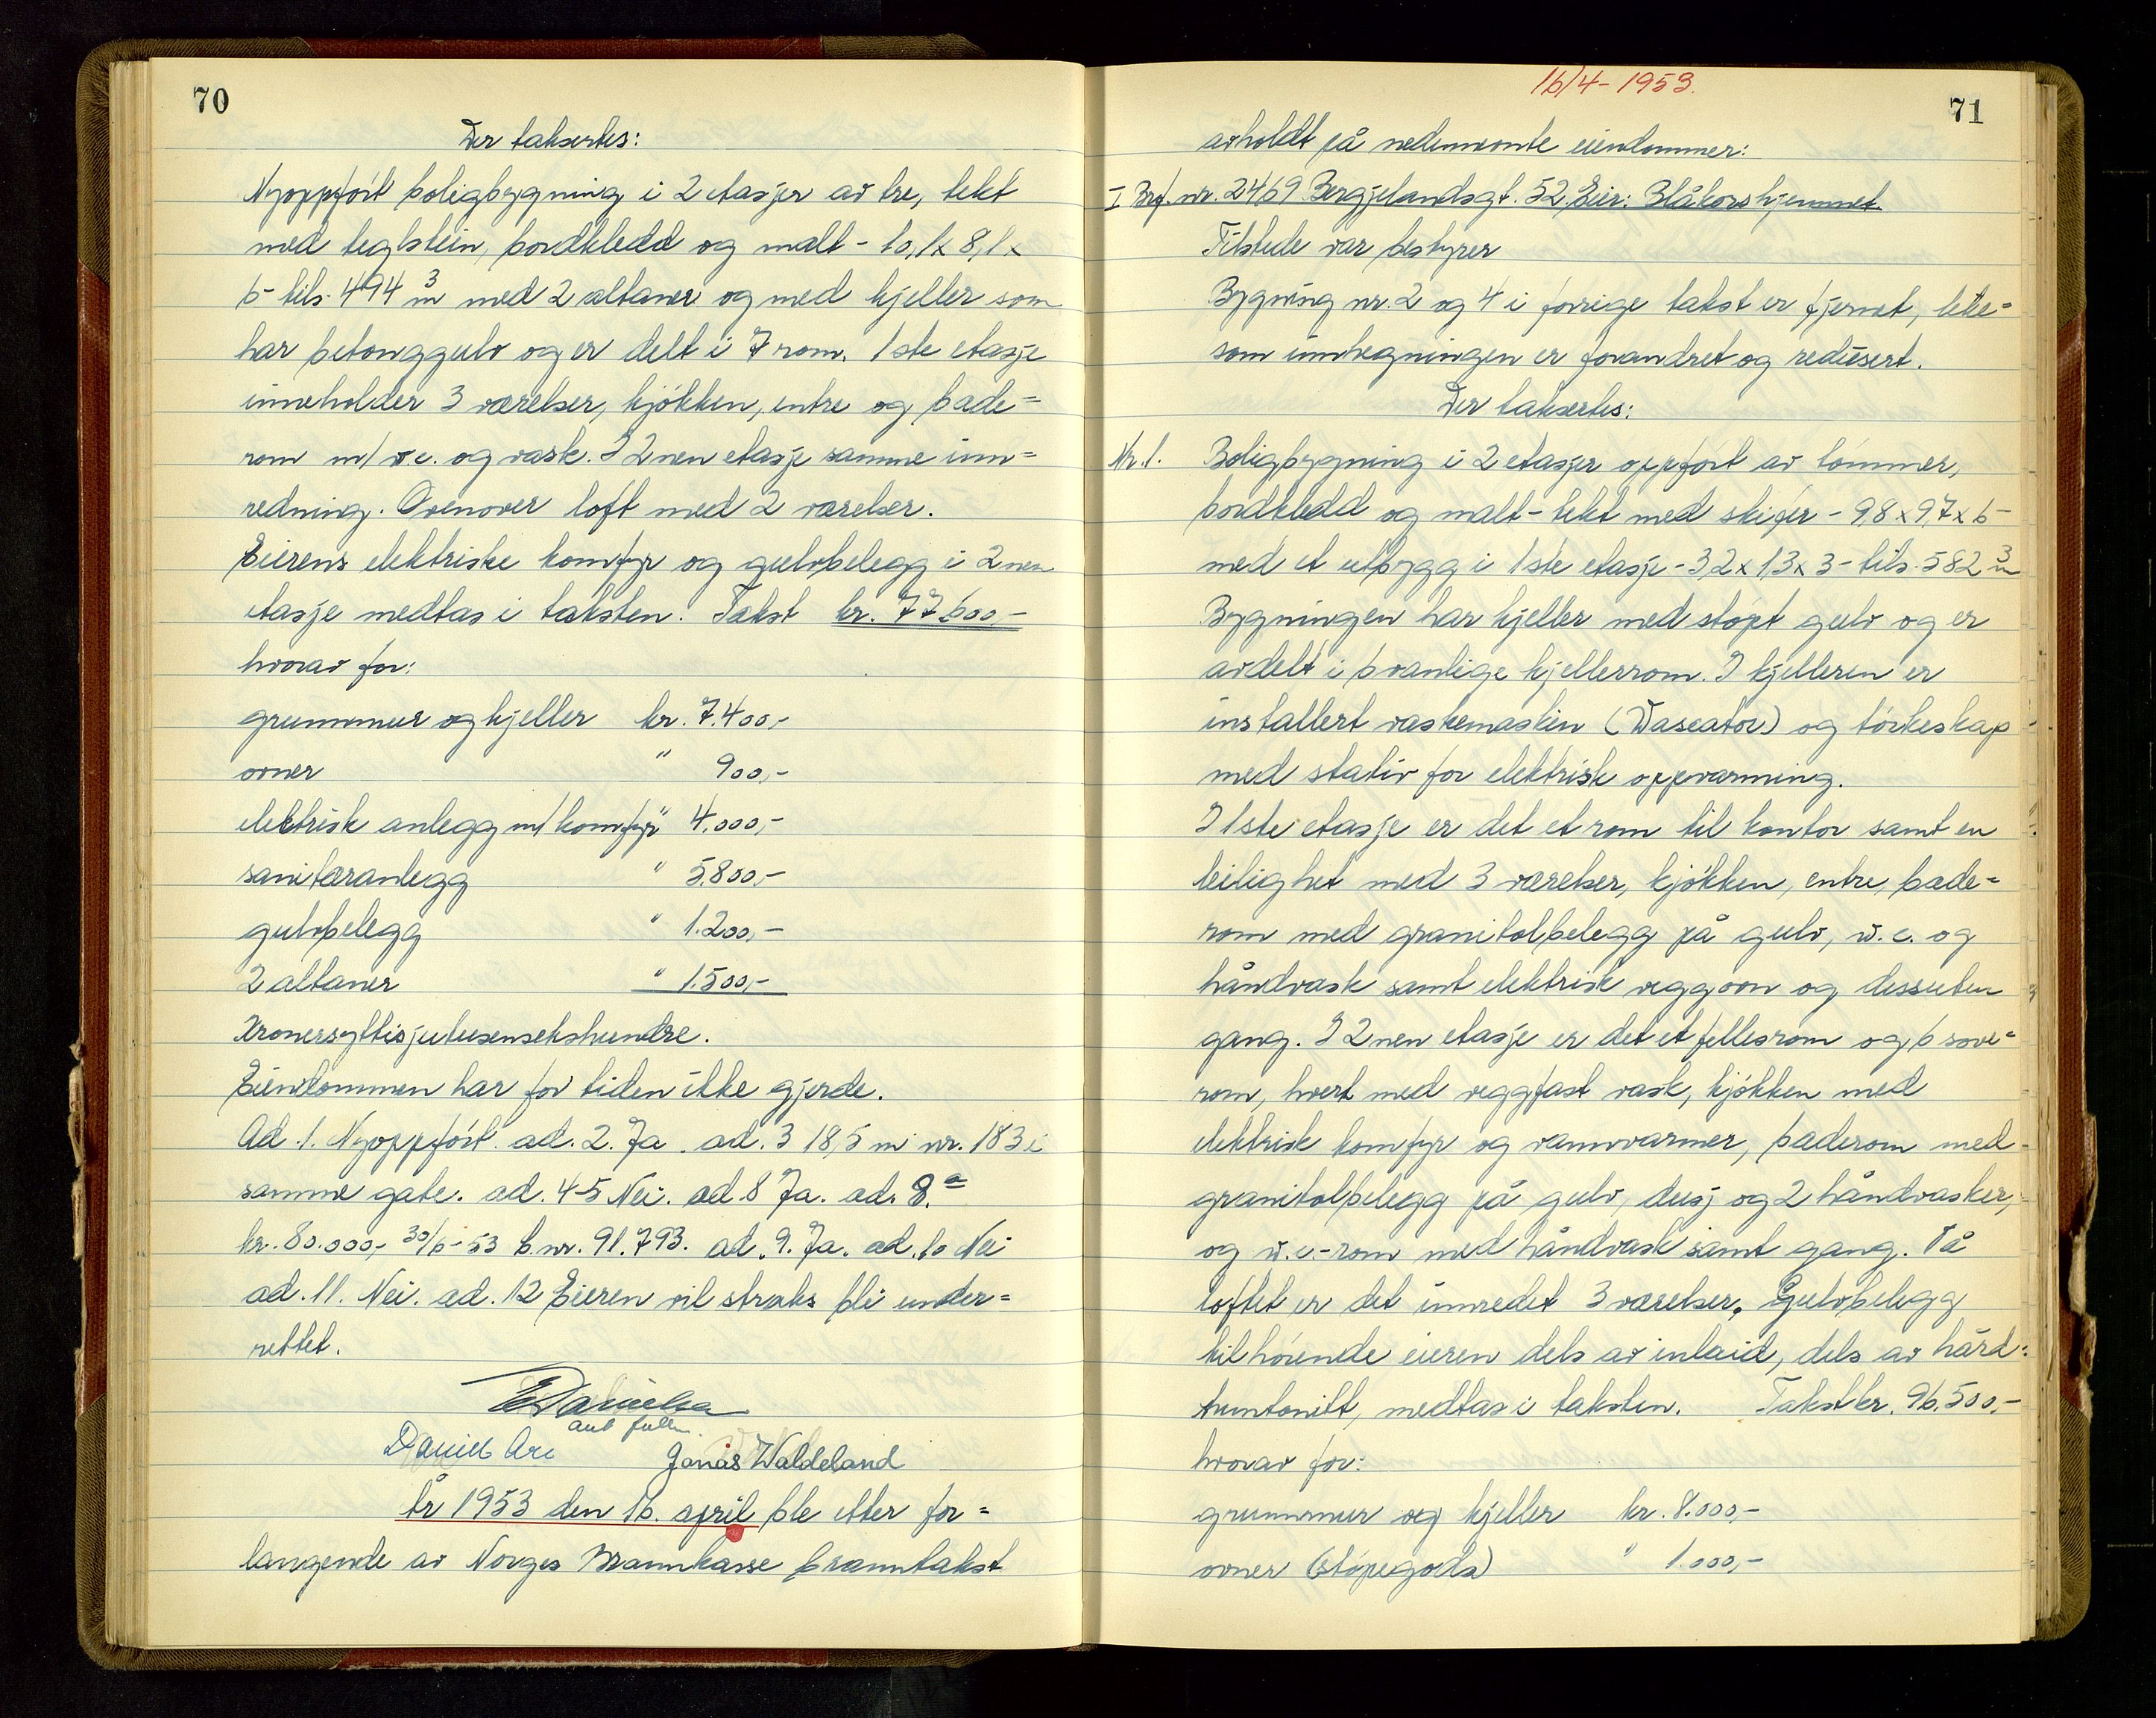 70
Der taksertes:
Nyoppført boligbygning i 2 etasjer av tre, tekt
med teglstein, bordkledd og malt - 10,1 x 8,1 x
6 - tils. 494 m³ med 2 altaner og med kjeller som
har betonggulv og er delt i 7 rom. 1ste etasje
inneholder 3 værelser, kjøkken, entre og bade=
rom m/ w.c. og vask. I 2nen etasje samme inn=
redning. Ovenover loft med 2 værelser.
Eierens elektriske komfyr og gulvbelegg i 2nen
etasje medtas i taksten. Takst kr. 77.600,-
hvorav for:
grunnmur og kjeller kr. 7.400,-
ovner " 900,-
elektrisk anlegg m/ komfyr " 4.000,-
sanitæranlegg " 5.800,-
gulvbelegg " 1.200,-
2 altaner " 1.500,-
Kronersyttisjutusensekshundre.
Eiendommen har for tiden ikke gjerde.
Ad. 1. Nyoppført. ad. 2. Ja. ad. 3 18,5 m nr. 183 i
samme gate. ad. 4-5 Nei. ad 8 Ja. ad. 8.a
kr. 80.000,- 30/6-53 b.nr. 91.793. ad. 9. Ja. ad. 10 Nei
ad. 11. Nei. ad. 12 Eieren vil straks bli under=
rettet.
Danielsen
aut fullm.
Daniel Are Jonas Waldeland
År 1953 den 16. april ble etter for=
langende av Norges Brannkasse branntakst
16/4-1953.
71
avholdt på nedennevnte eiendommer:
I Brf. nr. 2469 Bergjelandsgt. 52. Eier: Blåkorshjemmet.
Tilstede var bestyrer
Bygning nr. 2 og 4 i forrige takst er fjernet, like=
som innhegningen er forandret og redusert.
Der taksertes:
Nr. 1. Boligbygning i 2 etasjer oppført av tømmer,
bordkledd og malt - tekt med skifer - 9,8 x 9,7 x 6 -
med et utbygg i 1ste etasje - 3,2 x 1,3 x 3 - tils. 582 m³
Bygningen har kjeller med støpt gulv og er
avdelt i 6 vanlige kjellerrom. I kjelleren er
installert vaskemaskin (Wascator) og tørkeskap
med stativ for elektrisk oppvarming.
I 1ste etasje er det et rom til kontor samt en
leilighet med 3 værelser, kjøkken, entre, bade=
rom med granitolbelegg på gulv, w.c. og
håndvask samt elektrisk veggovn og dessuten
gang. I 2nen etasje er det et fellesrom og 6 sove=
rom, hvert med veggfast vask, kjøkken med
elektrisk komfyr og vannvarmer, baderom med
granitolbelegg på gulv, dusj og 2 håndvasker,
og w.c.-rom med håndvask samt gang. På
loftet er det innredet 3 værelser. Gulvbelegg
tilhørende eieren dels av inlaid, dels av hård=
huntonitt, medtas i taksten. Takst kr. 96.500,-
hvorav for:
grunnmur og kjeller kr. 8.000,-
ovner (støpegods) " 1.000,-